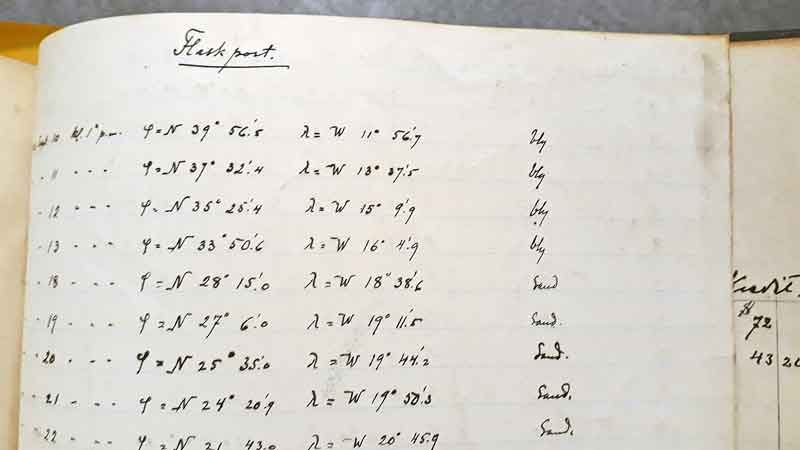 Flaskpost.
Sept. 10 kl. 1° p.m. φ = N 39° 56'.5 λ = W 11° 56'.7 bly
- 11 - - - φ = N 37° 32'.4 λ = W 13° 37'.5 bly
- 12 - - - φ = N 35° 25'.4 λ = W 15° 9'.9 bly
- 13 - - - φ = N 33° 50'.6 λ = W 16° 4'.9 bly
- 18 - - - φ = N 28° 15'.0 λ = W 18° 38'.6 Sand
- 19 - - - φ = N 27° 6'.0 λ = W 19° 11'.5 Sand.
- 20 - - - φ = N 25° 35'.0 λ = W 19° 44'.2 Sand.
- 21 - - - φ = N 24° 20'.9 λ = W 19° 50'.3 Sand.
- 22 - - - φ = N 21 43.0 λ = W 20° 45'.9 Sand.
Kredit.
72
43 20